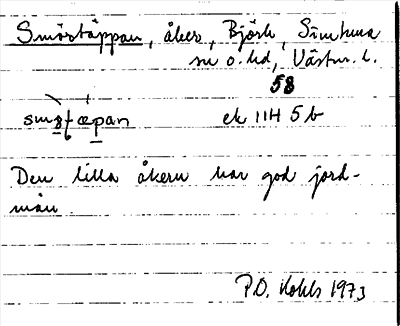 Smörtäppan, åker, Björk, Simtuna
sn o. hd, Västm. l.
58
ek 11H 5b
Den lilla åkern har god jord-
mån.
P.O. 1973